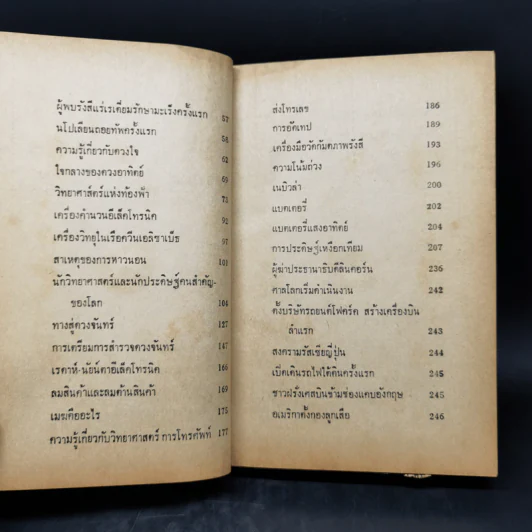 ผู้พบรังสีแร่เรเดี่ยมรักษามะเร็งครั้งแรก 57
นโปเลียนถอยทัพครั้งแรก 58
ความรู้เกี่ยวกับดวงใจ 62
ใจกลางของดวงอาทิตย์ 69
วิทยาศาสตร์แห่งท้องฟ้า 73
เครื่องคำนวนอีเล็คโทรนิค 92
เครื่องวิทยุในเรือควีนเอลิซาเบ็ธ 97
สาเหตุของการหาวนอน 101
นักวิทยาศาสตร์และนักประดิษฐ์คนสำคัญ-
ของโลก 104
ทางสู่ดวงจันทร์ 127
การเตรียมการสำรวจดวงจันทร์ 147
เรดาห์-นัยน์ตาอีเล็คโทรนิค 166
ลมสินค้าและลมต้านสินค้า 169
เมฆคืออะไร 175
ความรู้เกี่ยวกับวิทยาศาสตร์ การโทรศัพท์ 177
ส่งโทรเลข 186
การอัดเทป 189
เครื่องมือวัดกัมตภาพรังสี 193
ความโน้มถ่วง 196
เนบิวล่า 200
แบตเตอรี่ 202
แบตเตอรี่แสงอาทิตย์ 204
การประดิษฐ์เหงือกเทียม 207
ผู้ฆ่าประธานาธิบดีลินคอร์น 236
ศาลโลกเริ่มดำเนินงาน 242
ตั้งบริษัทรถยนต์ไฟค์ร์ด สร้างเครื่องบิน
ลำแรก 243
สงครามรัสเซียญี่ปุ่น 244
เปิดเดินรถไฟใต้ดินครั้งแรก 245
ชาวฝรั่งเศสบินข้ามช่องแคบอังกฤษ 245
อเมริกาตั้งกองลูกเสือ 246